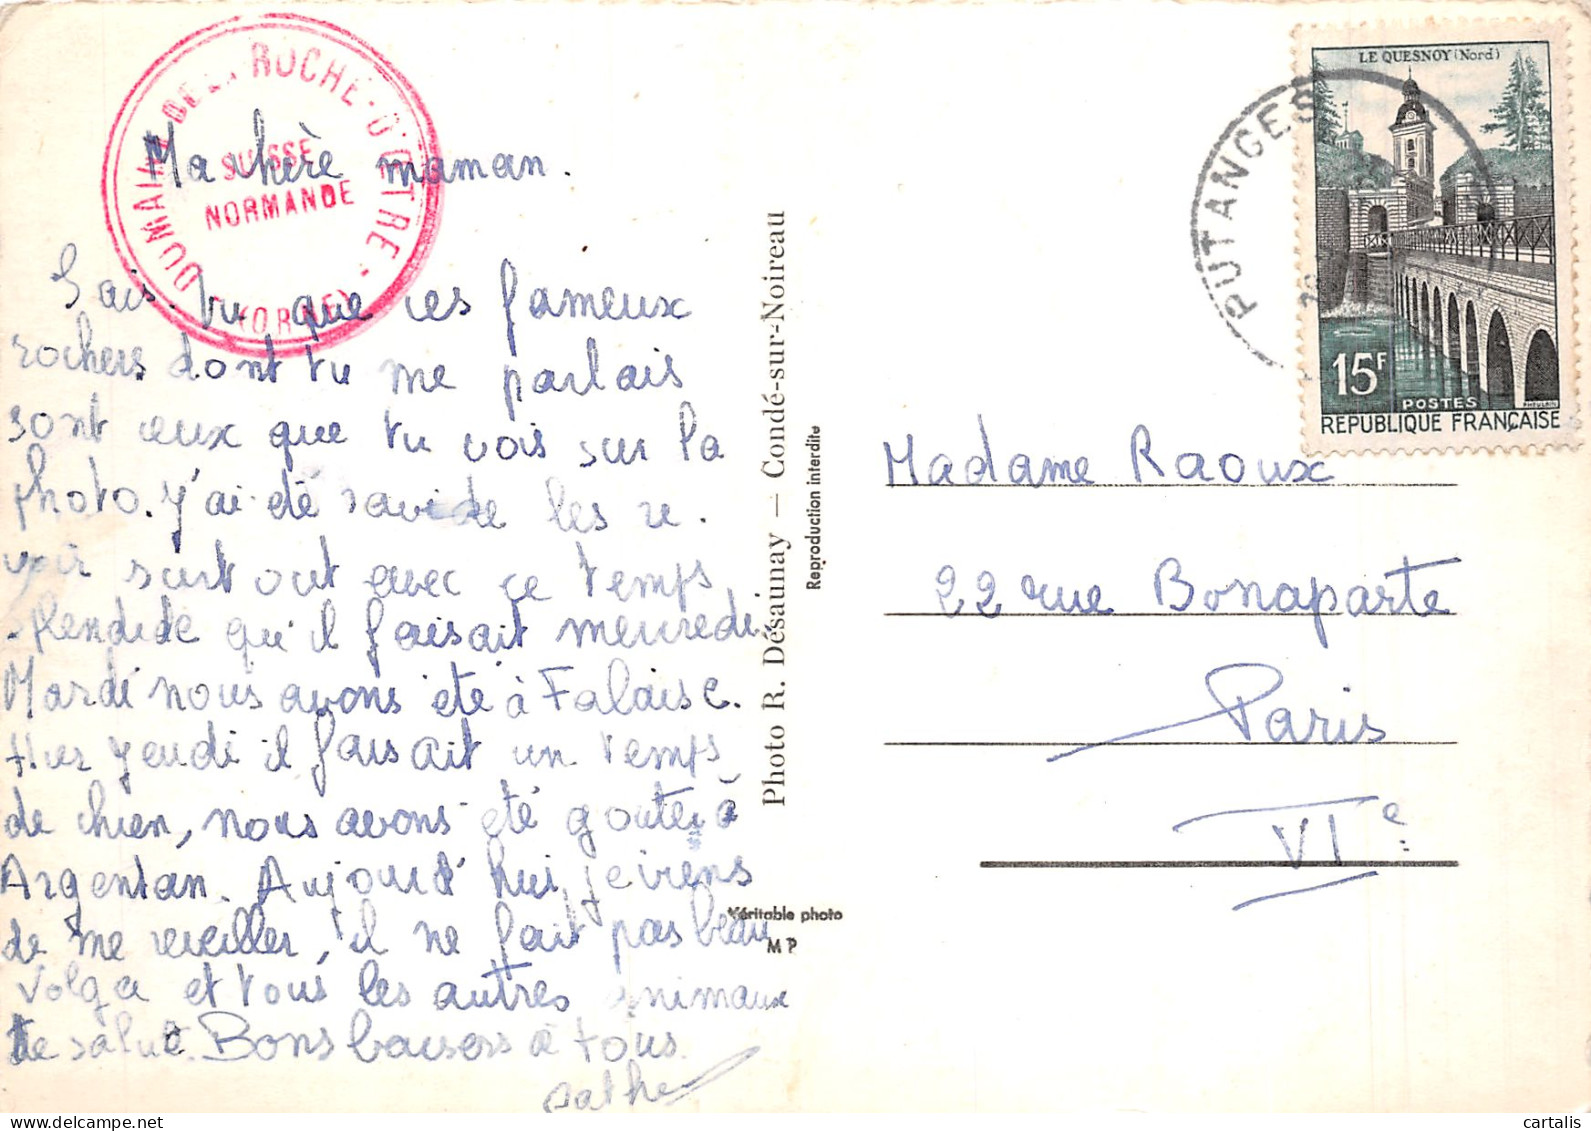 DOMAINE DE LA ROCHE D'OËTRE
SUISSE
NORMANDE
(ORNE)
Ma chère maman.
Sais-tu que ces fameux
rochers dont tu me parlais
sont ceux que tu vois sur la
photo. J'ai été ravi de les re-
voir surtout avec ce temps
splendide qu'il faisait mercredi
Mardi nous avons été à Falaise.
Hier jeudi il faisait un temps
de chien, nous avons été gouter à
Argentan. Aujourd'hui, je viens
de me reveiller, il ne fait pas beau
Volga et tous les autres animaux
te salue. Bons baisers à tous
Photo R. Désaunay — Condé-sur-Noireau
Reproduction interdite
Véritable photo
M P
PUTANGES
LE QUESNOY (Nord)
15F
POSTES
REPUBLIQUE FRANÇAISE
Madame Raoux
22 rue Bonaparte
Paris
VIe
cartalis
delcampe.net